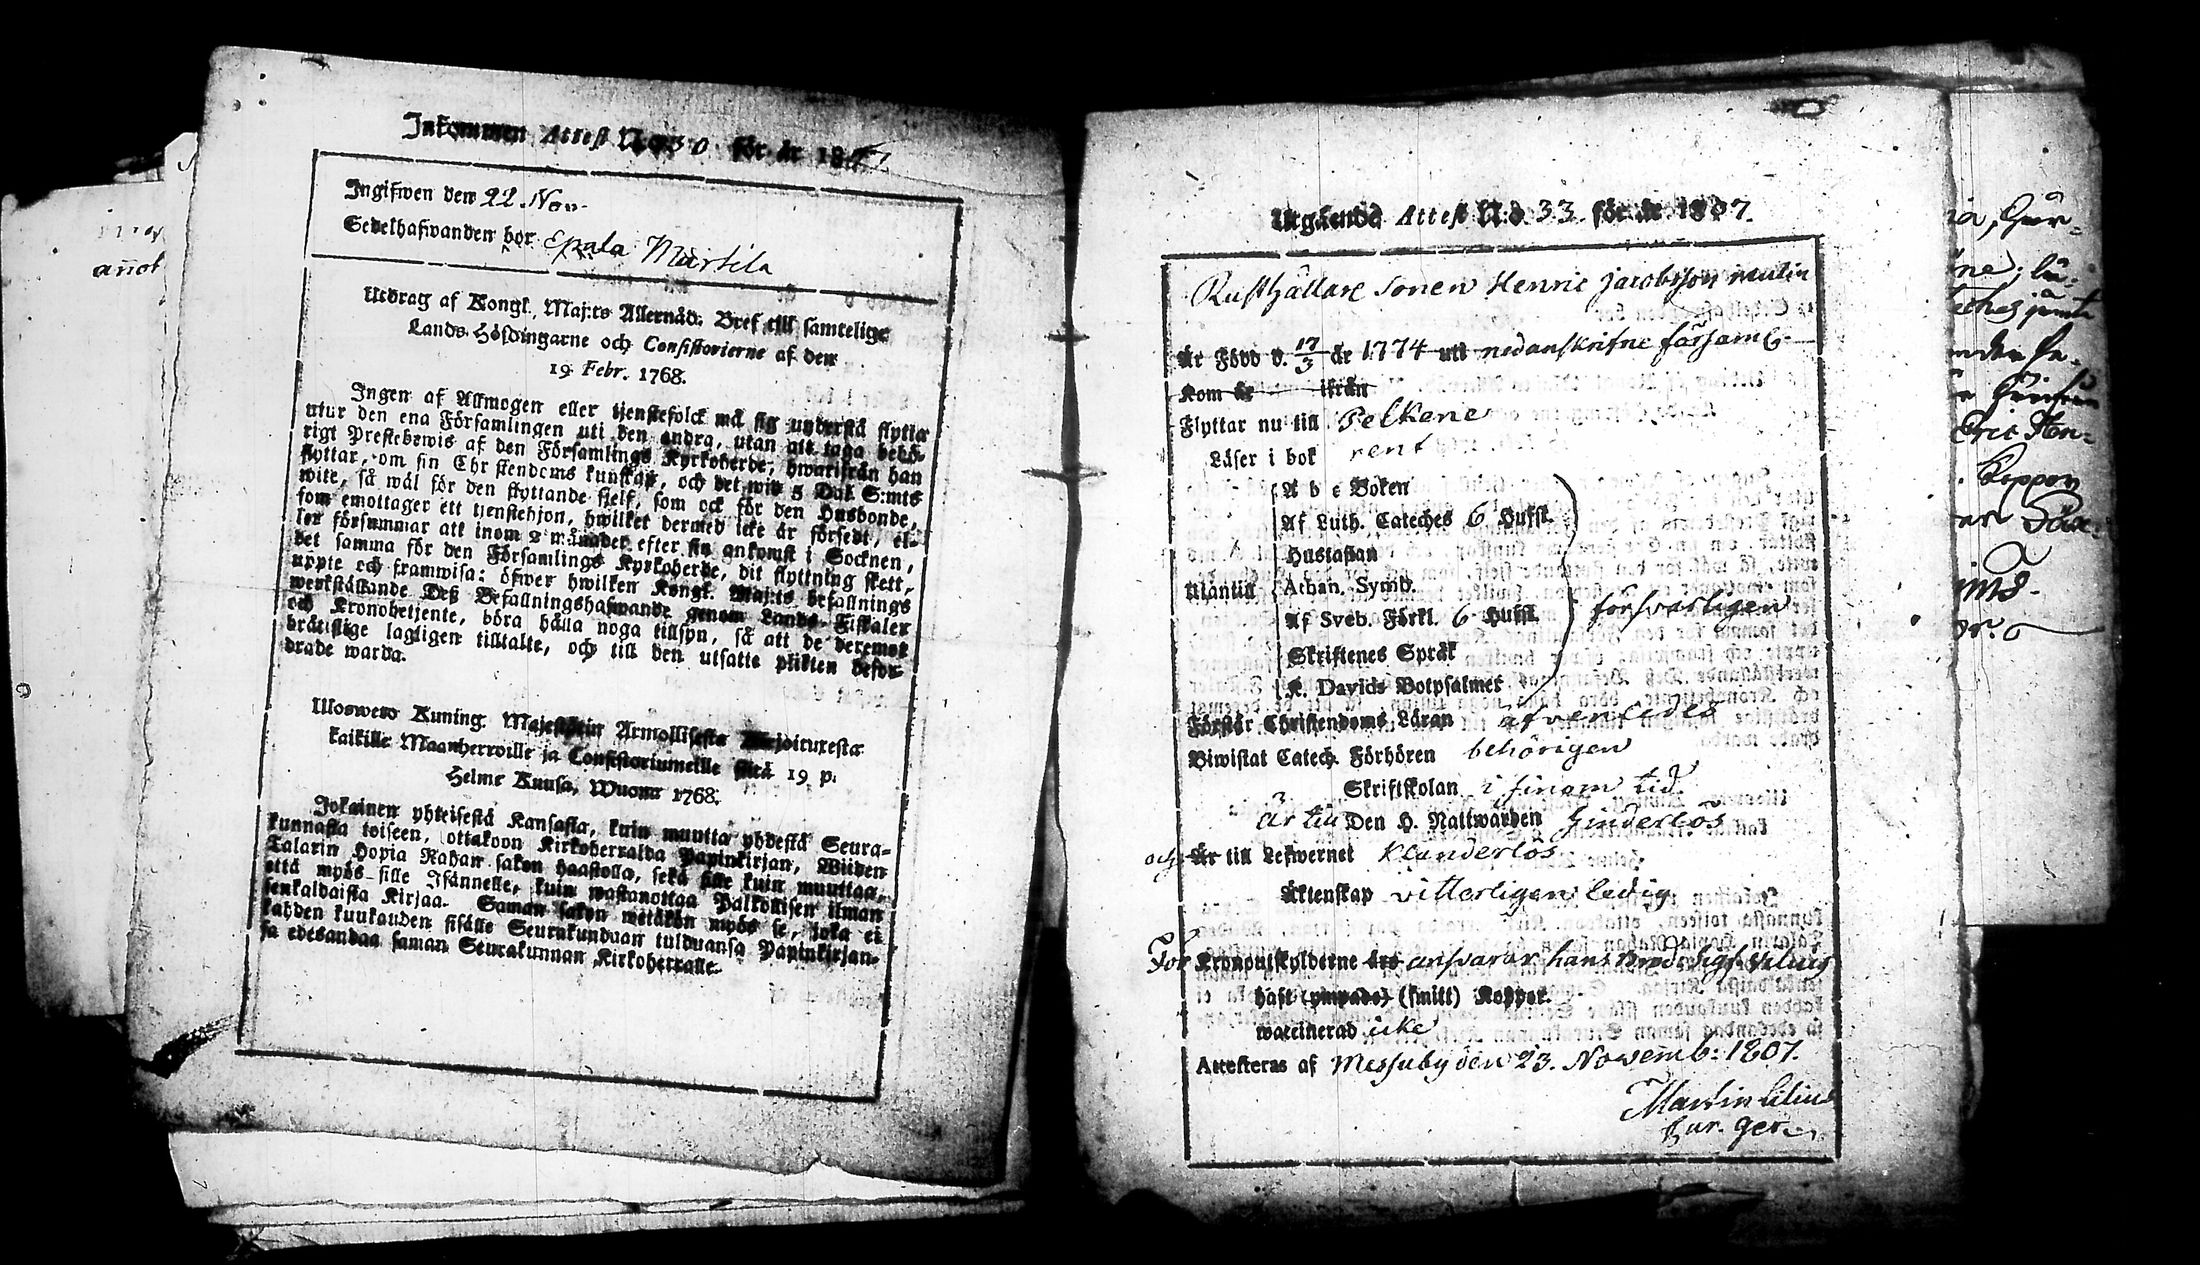 Inkommen Attest N:o 30 för år 1807.
Ingifwen den 22. Nov.
Sedelhafwanden bor Epala Martila
Utdrag af Kongl. Maj:ts Allernåd. Bref till samtelige
Lands-Höfdingarne och Consistorierne af den
19 Febr. 1768.
Ingen af Allmogen eller tjenstefolck må sig understå flytta
utur den ena Församlingen uti den andra, utan att taga behö-
rigt Prestebewis af den Församlings Kyrkoherde, hwarifrån han
flyttar, om sin Christendoms kunskap, och det wid 5 Dal. S:mts
wite, så wäl för den flyttande sjelf, som ock för den Husbonde,
som emottager ett tjenstehjon, hwilket dermed icke är försedt, el-
ler försummar att inom 2 månader efter sin ankomst i Socknen,
det samma för den Församlings Kyrkoherde, dit flyttning skett,
uppte och framwisa: öfwer hwilken Kongl. Maj:ts befallnings
werkställande Deß Befallningshafwande genom Lands-Fiskaler
och Kronobetjente, böra hålla noga tillsyn, så att de deremot
bråttslige lagligen tilltalte, och till den utsatte plikten befor-
drade warda.
Ulosweto Kuning. Majestätin Armollisesta Kirjoituxesta
kaikille Maanherroille ja Consistoriumeille siitä 19 p.
Helme Kuusa, Wuonna 1768.
Jokainen yhteisestä Kansasta, kuin muutta yhdestä Seura-
kunnasta toiseen, ottakoon Kirkoherralda Papinkirjan, Wiiden
Talarin Hopia Rahan sakon haastolla, sekä sille kuin muuttaa,
että myös sille Isännelle, kuin wastanottaa Palkollisen ilman
senkaldaista Kirjaa. Saman sakon wetäkön myös se, joka ei
kahden kuukauden sisälle Seurakunduan tulduansa Papinkirjan-
sa edesandaa saman Seurakunnan Kirkoherralle.
Utgående Attest N:o 33 för år 1807.
Rusthållare Sonen Henric Jacobsson
Är Född d. 17/3 år 1774 uti nedanskrifne församl.
Kom år ifrån
Flyttar nu till Pelkene
Läser i bok rent
A b c Boken
Af Luth. Cateches 6 Hufst.
Hustaflan
Utantill Athan. Symb.
Af Sveb. Förkl. 6 Hufst. forsvarligen
Skriftenes Språk
K. Davids Botpsalmer
Förstår Christendoms Läran äfvenledes
Biwistat Catech. Förhören behörigen
Skriftskolan i sinom tid
Är till Den H. Nattwarden hinderlös
och Är till Lefwernet klanderlös
Äktenskap vitterligen ledig
För Kronoutskylderne års ansvarar hans
haft (ympade) (smitt) Koppor.
waccinerad icke
Attesteras af Messuby den 23. Novemb: 1807.
Martin Lilius